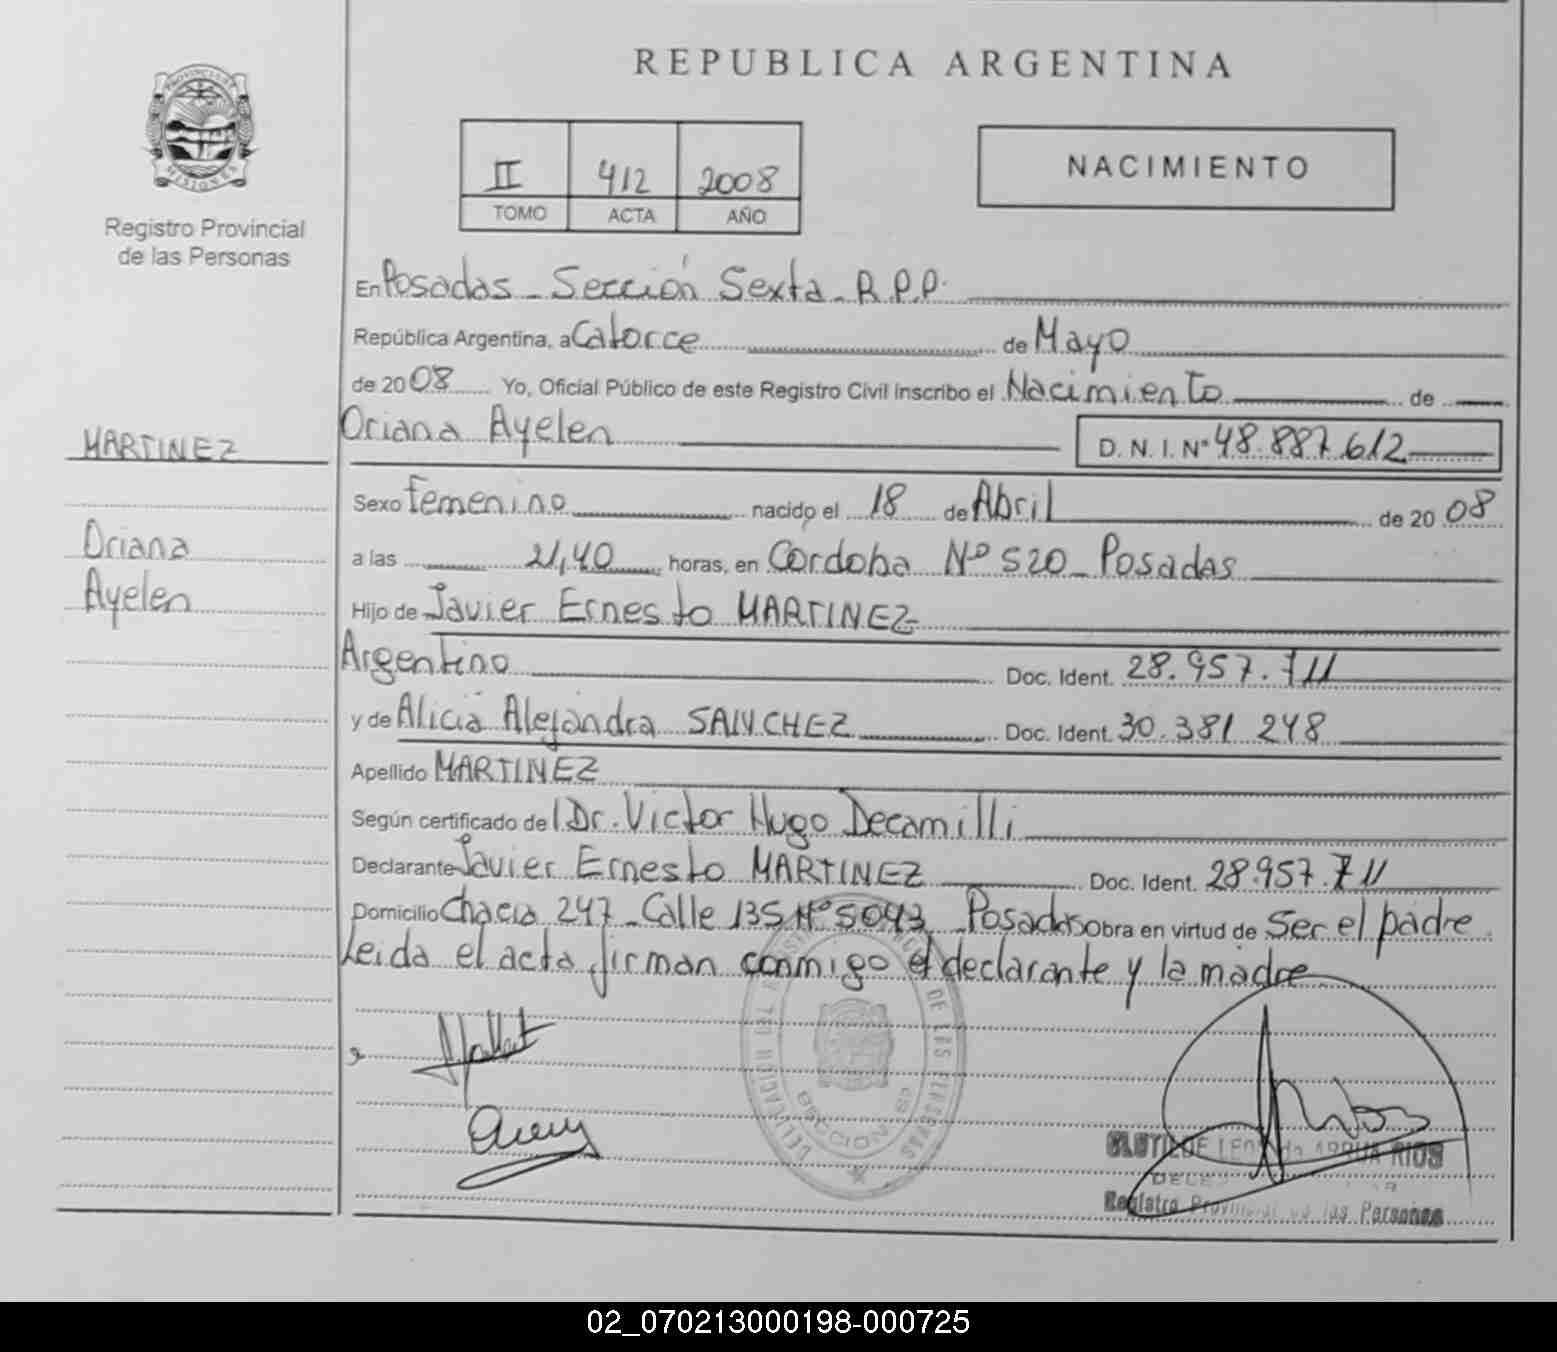 REPUBLICA ARGENTINA
PROVINCIA DE
MISIONES
Registro Provincial
de las Personas
II 412 2008
TOMO ACTA AÑO
NACIMIENTO
En Posadas - Sección Sexta - R.P.P.
República Argentina, a Catorce de Mayo
de 2008 Yo, Oficial Público de este Registro Civil inscribo el Nacimiento de
Oriana Ayelen D. N. I. Nº 48.887.612
MARTINEZ
Sexo Femenino nacido el 18 de Abril de 2008
Oriana
a las 21,40 horas, en Cordoba Nº 520 - Posadas
Ayelen
Hijo de Javier Ernesto MARTINEZ
Argentino Doc. Ident. 28.957.711
y de Alicia Alejandra SANCHEZ Doc. Ident. 30.381.248
Apellido MARTINEZ
Según certificado del Dr. Victor Hugo Decamilli
Declarante Javier Ernesto MARTINEZ Doc. Ident. 28.957.711
Domicilio Chacra 247 - Calle 135 Nº 5043 - Posadas obra en virtud de Ser el padre.
Leida el acta, firman conmigo el declarante y la madre
DELEGACION DEL REGISTRO DE LAS PERSONAS
SECCION 6a
ARRUA RIOS
Registro Provincial de las Personas
02_070213000198-000725